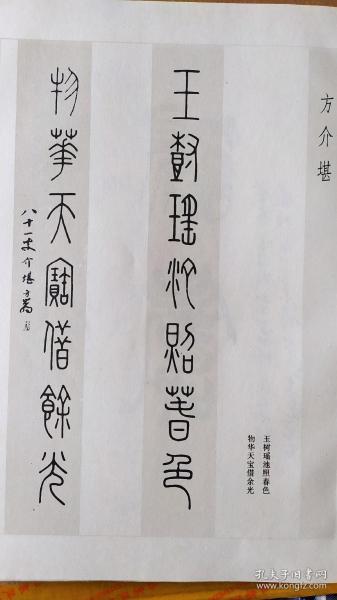 方介堪
王樹瑤池照春色
物華天寶借餘光
八十一叟介堪方岩
玉树瑶池照春色
物华天宝借余光
孔夫子旧书网